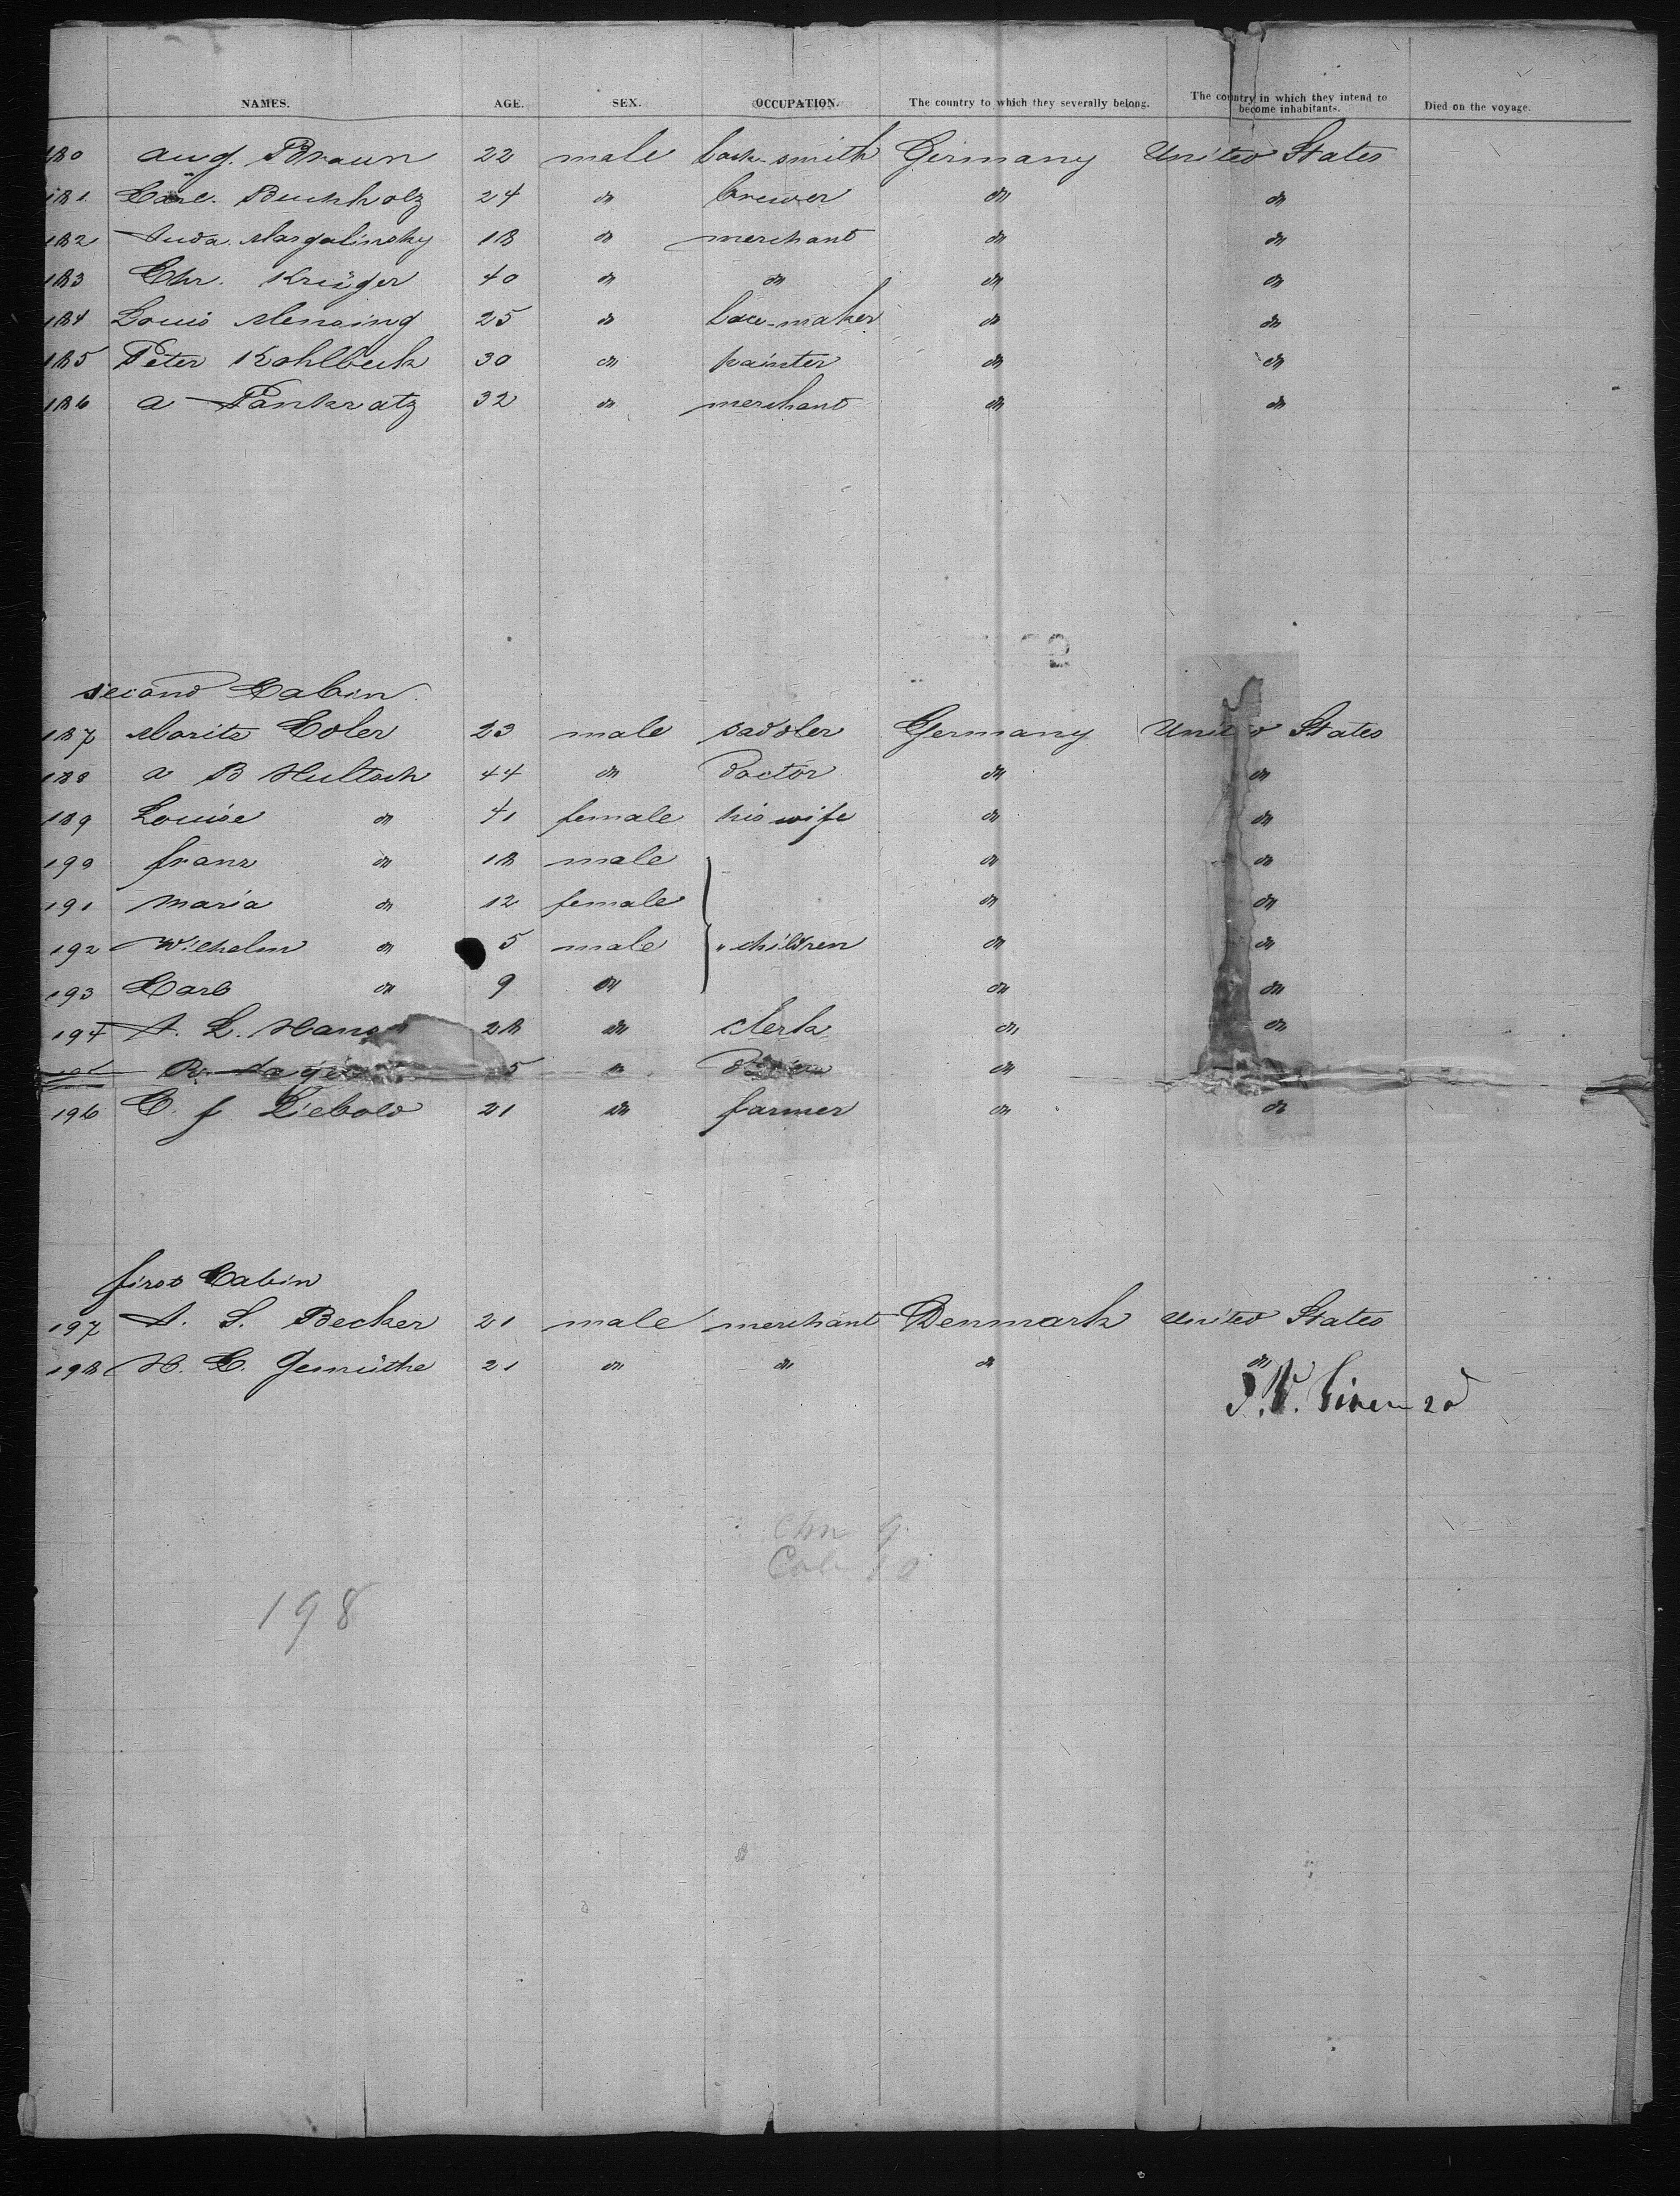 NAMES. AGE. SEX. OCCUPATION. The country to which they severally belong. The country in which they intend to become inhabitants. Died on the voyage.
180 Aug. Braun 22 male lock-smith Germany United States
181 Carl. Buchholz 24 do brewer do do
182 Juda. Margalinsky 18 do merchant do do
183 Chr. Krüger 40 do do do do
184 Louis Mensing 25 do lace-maker do do
185 Peter Kohlbeck 30 do painter do do
186 A Pankratz 32 do merchant do do
second Cabin
187 Moritz Edler 23 male saddler Germany United States
188 A B Hultsch 44 do doctor do do
189 Louise do 41 female his wife do do
190 Franz do 18 male do do
191 Maria do 12 female do do
192 Wilhelm do 5 male " children do do
193 Carl do 9 do do do
194 A. L. 28 do clerk do do
5 do do
196 C. F Liebold 21 do farmer do do
first Cabin
197 A. S. Becker 21 male merchant Denmark United States
198 H. C. Gemüthe 21 do do do do
Chn 9
Cab
198